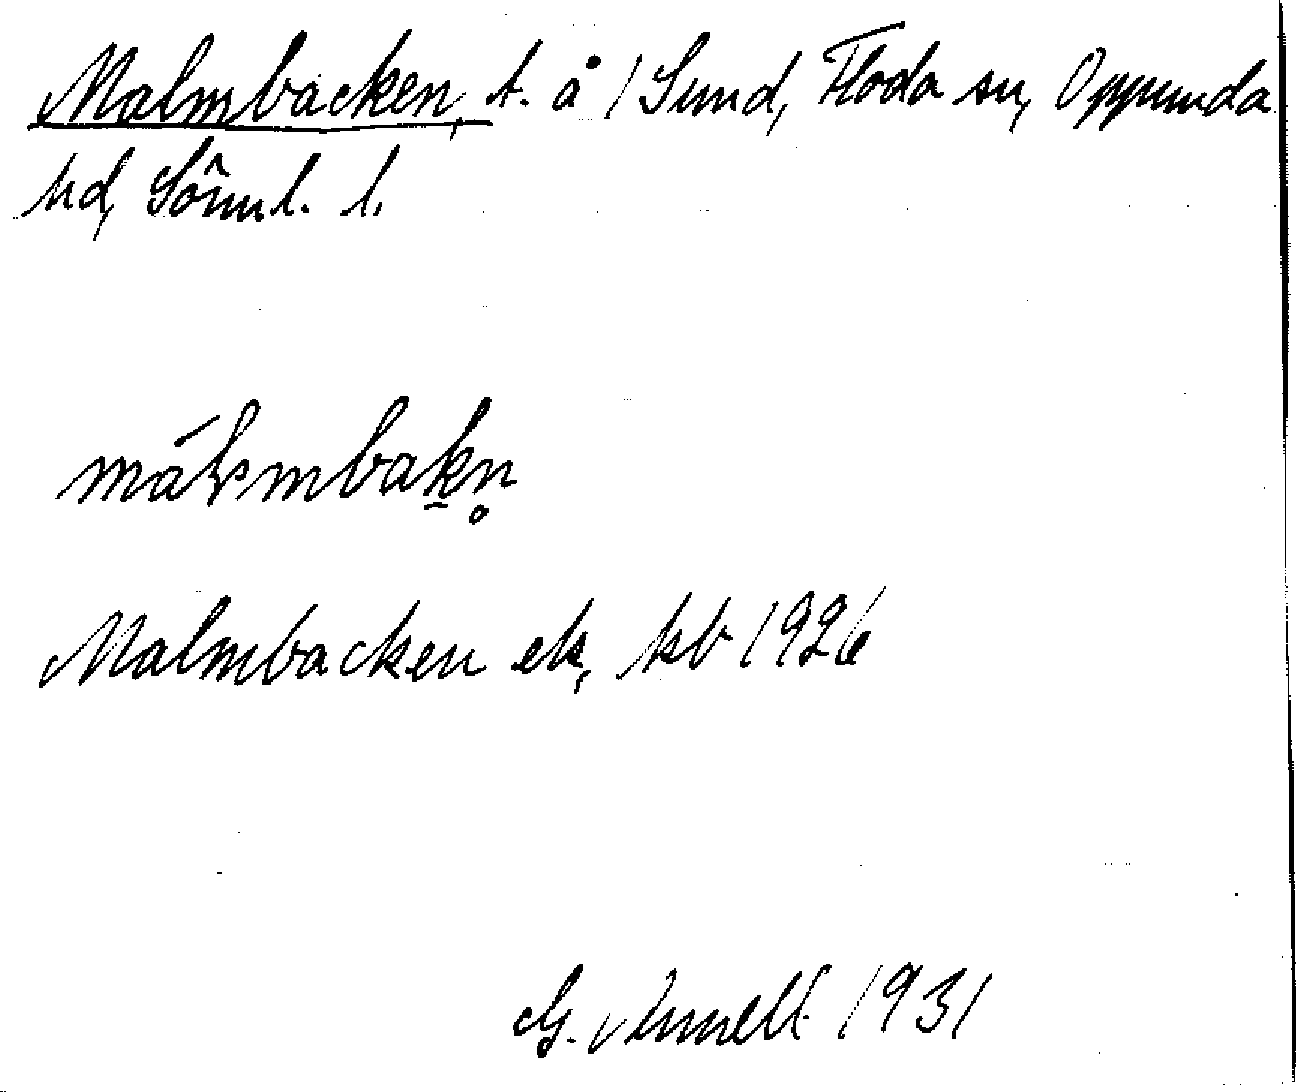 Malmbacken, t. å 1 Sund, Floda sn, Oppunda
hd, Sörml. l.
málmbakn̥
Malmbacken ek, kb 1926
G. 1931